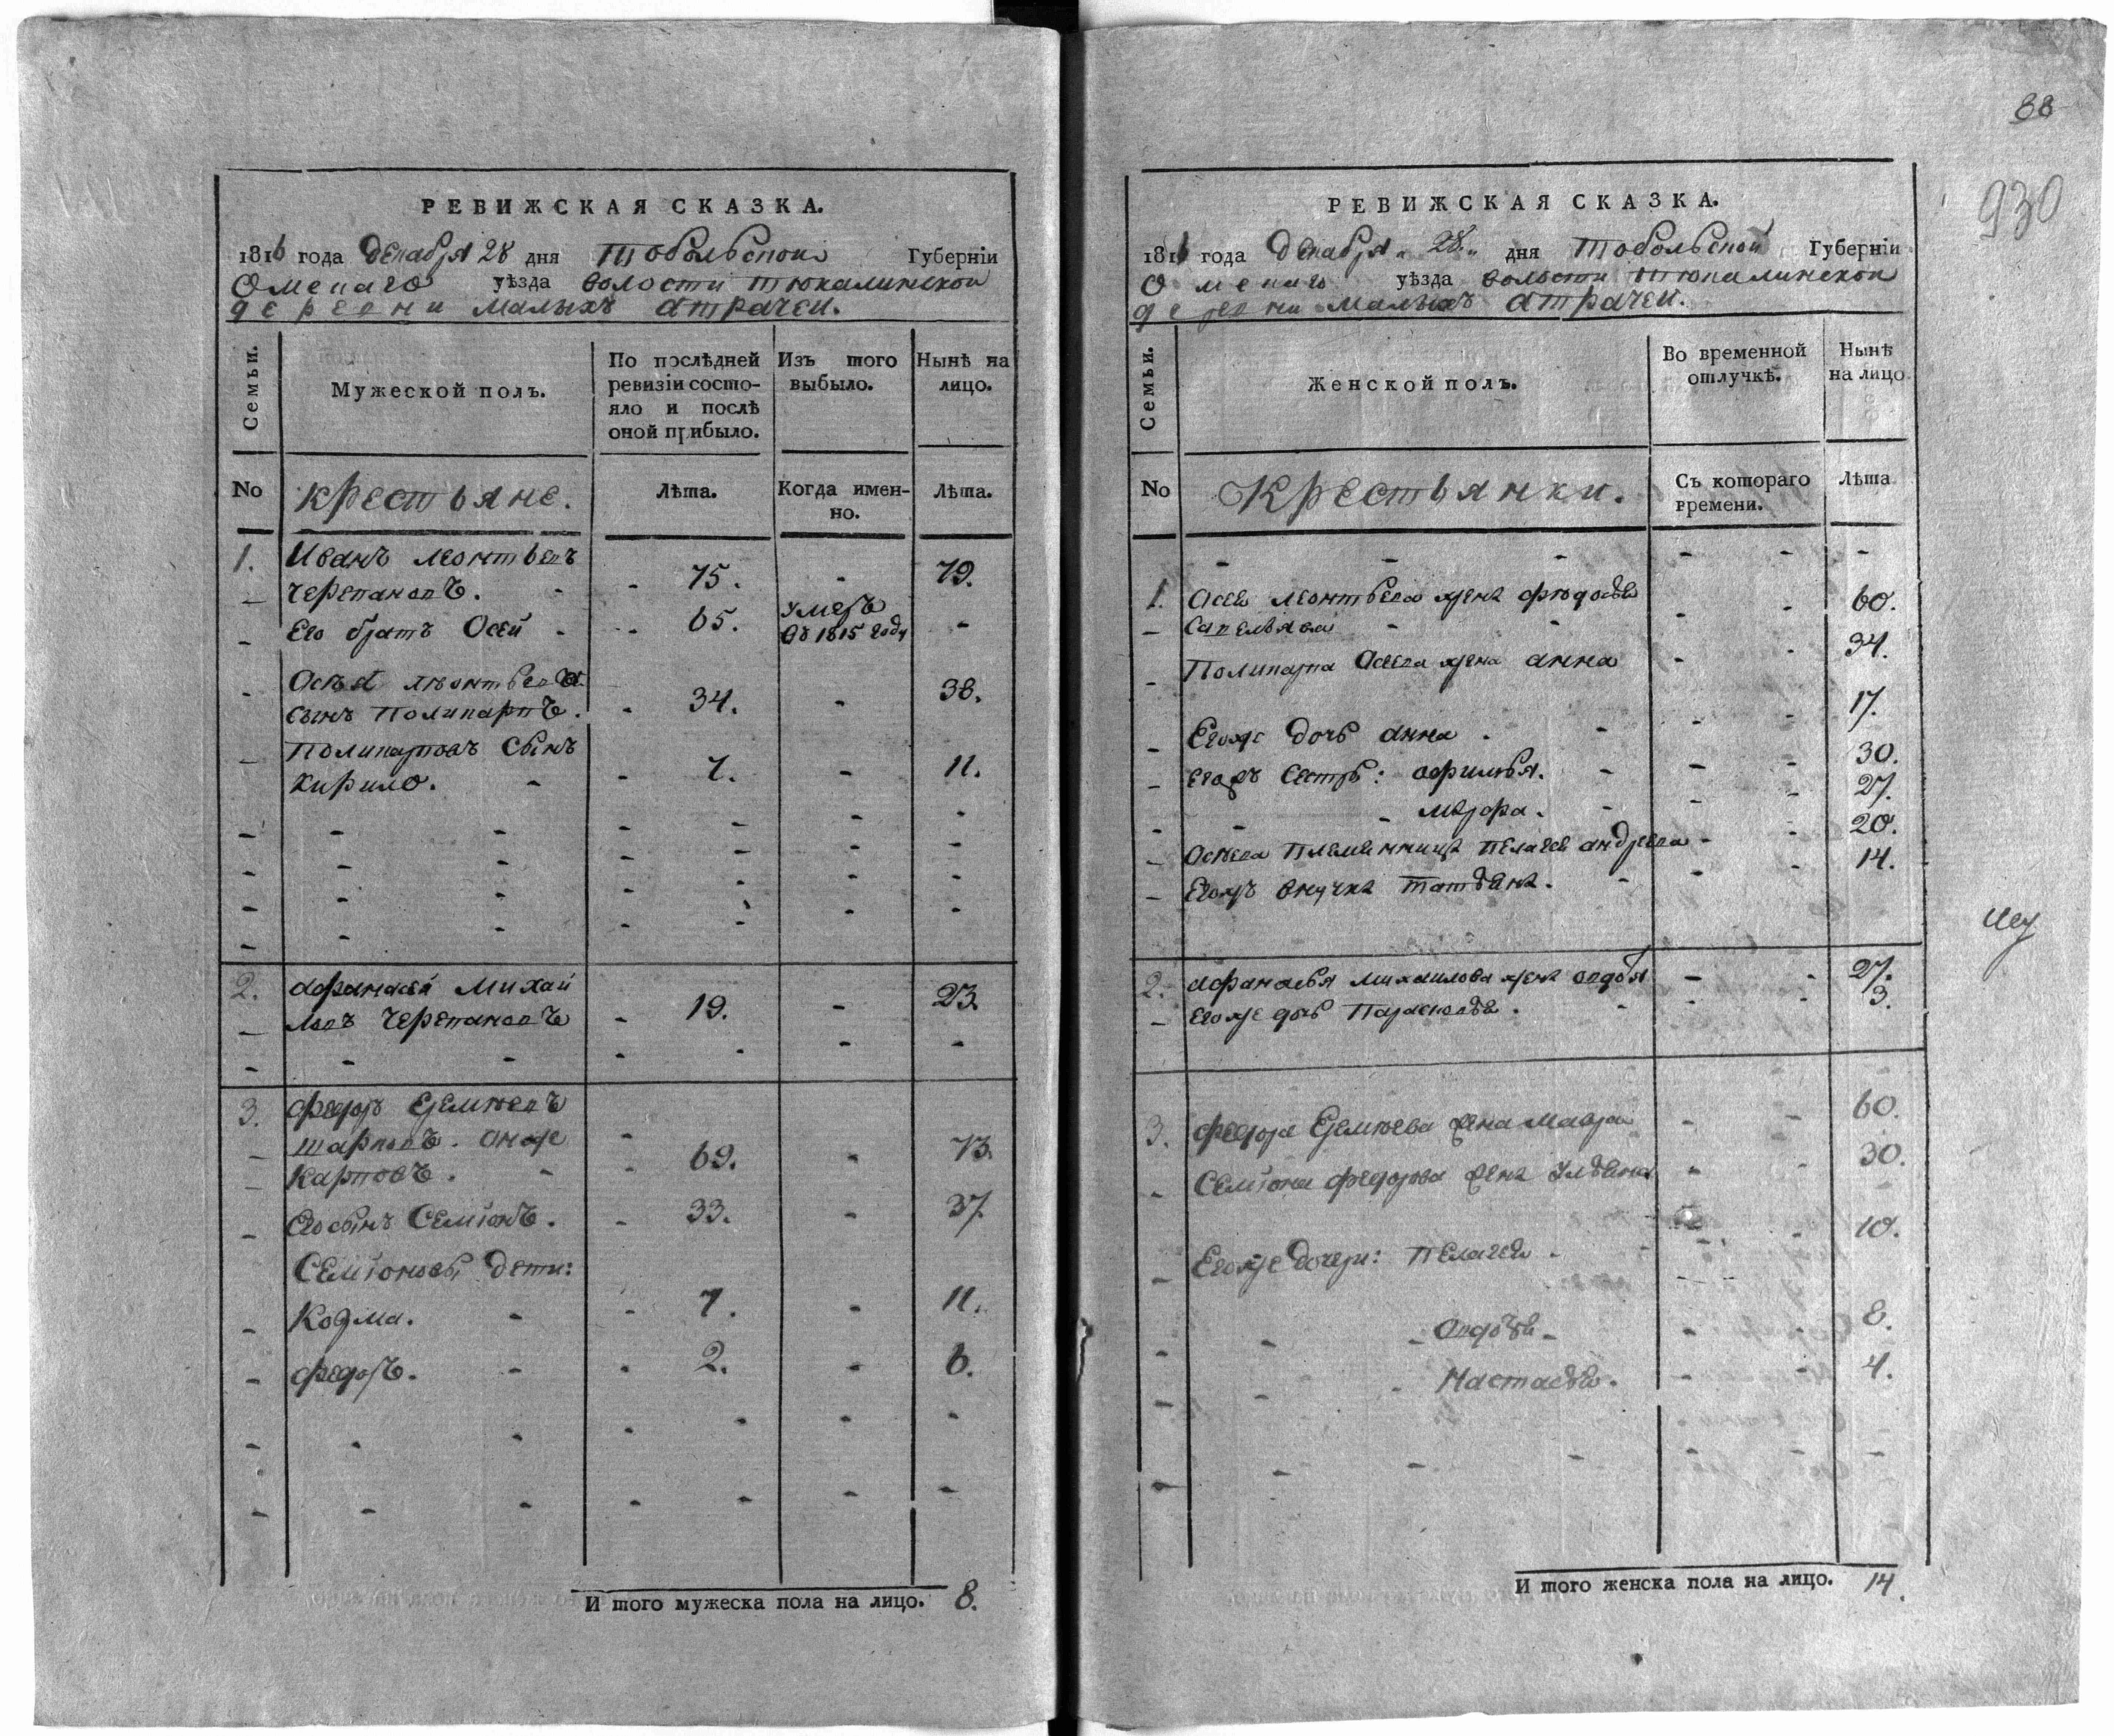 РЕВИЖСКАЯ СКАЗКА.
1816 года Декабря 28 дня Тобольской Губерніи
Омскаго уѣзда волости Тюкалинской
деревни Малыхъ Атрачей.
Семьи.
Мужеской полъ.
По послѣдней ревизіи состояло и послѣ оной прибыло.
Изъ того выбыло.
Нынѣ на лицо.
No
Крестьяне.
Лѣта.
Когда имен-
но.
Лѣта.
1. Иванъ Леонтьевъ
Черепановъ. 75. 79.
Его братъ Осей 65. умеръ въ 1815 году
Осѣя Лѣонтьева
сынъ Поликарпъ. 34. 38.
Поликарповъ сынъ
Кирило. 7. 11.
2. Афанасей Михай
ловъ Черепановъ 19. 23.
3. Федоръ Еремѣевъ
Шарповъ. онже
Карповъ. 69. 73.
Его сынъ Семіонъ. 33. 37.
Семіоновы дети:
Козма. 7. 11.
Федоръ. 2. 6.
И того мужеска пола на лицо. 8.
88
930
РЕВИЖСКАЯ СКАЗКА.
1816 года Декабря 28 дня Тобольской Губерніи
Омскаго уѣзда волости Тюкалинской
деревни Малыхъ Атрачей.
Семьи.
Женской полъ.
Во временной отлучкѣ.
Нынѣ на лицо
No
Крестьянки.
Съ котораго времени.
Лѣта
1. Осея Леонтьева жена Фѣдосья
Савельява 60.
Поликарпа Осеева жена Анна 34.
Егоже дочь Анна. 17.
Егожъ сестры: Офимья. 30.
Мавра. 27.
Осѣева племянница Пелагея Андреева 20.
Егожъ внучка Татьяна. 14.
2. Афанасья Михаилова жена Овдотя 27.
Егоже дочь Парасковья. 3.
3. Федора Еремѣева жена Мавра 60.
Семіона Федорова жена Ульяна 30.
Егоже дочери: Пелагея 10.
Овдотья 8.
Настасья. 4.
И того женска пола на лицо. 14.